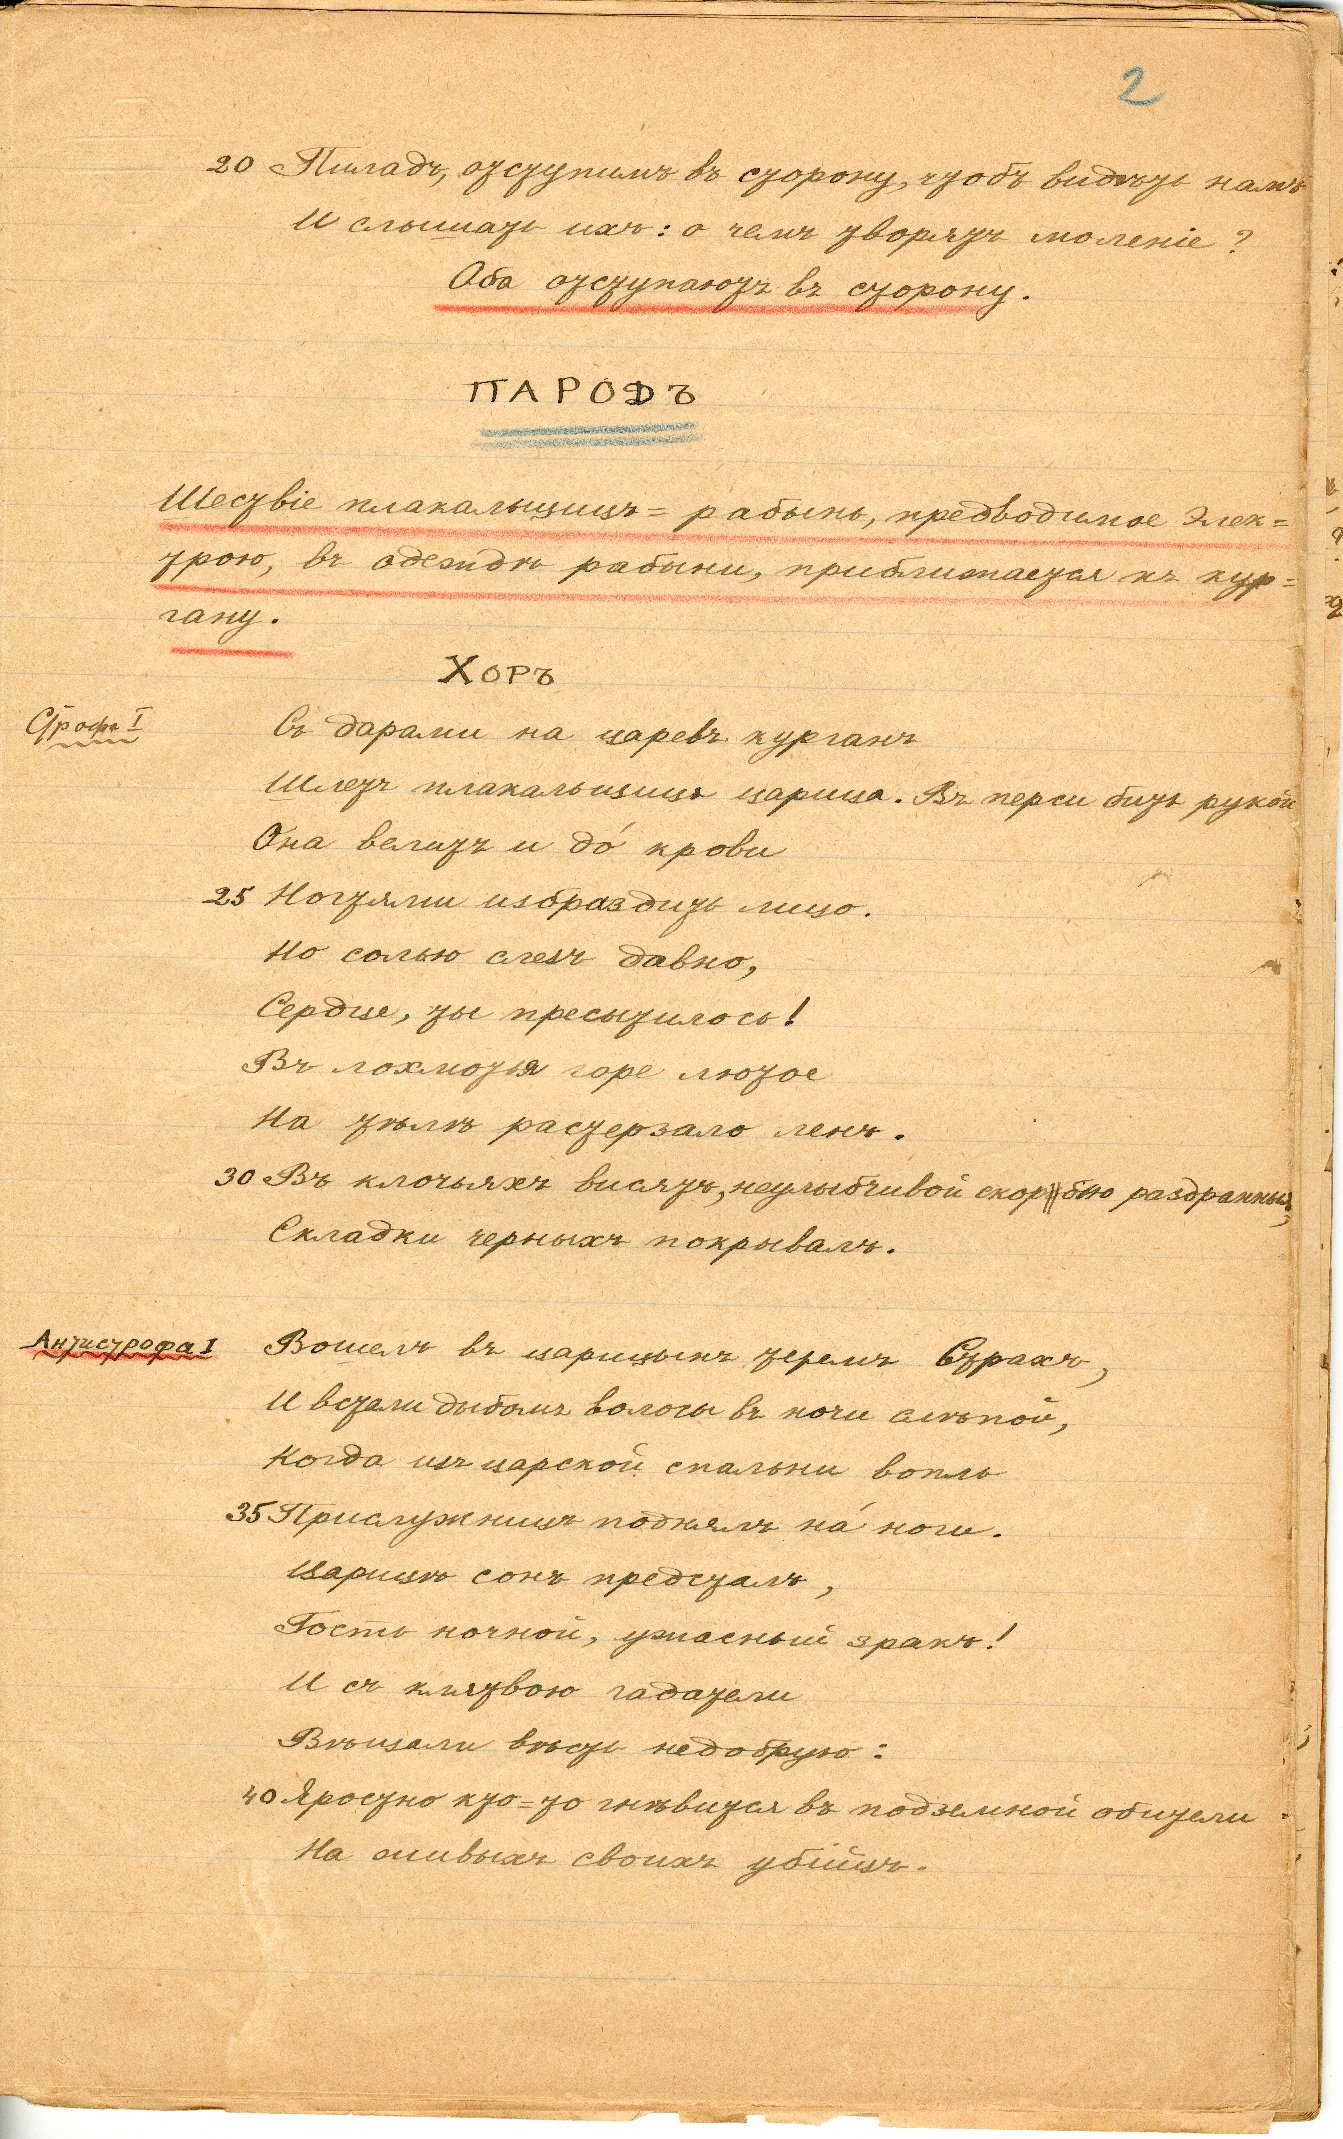 2
20 Пиладъ, отступимъ въ сторону, чтобъ видѣть намъ
И слышать ихъ: о чемъ творятъ моленіе?
Оба отступаютъ въ сторону.
ПАРОДЪ
Шествіе плакальщицъ=рабынь, предводимое Элек=
трою, въ одеждѣ рабыни, приближается къ кур=
гану.
ХОРЪ
Строфа I
Съ дарами на царевъ курганъ
Шлетъ плакальщицъ царица. Въ перси бить рукой
Она велитъ и до́ крови
25 Ногтями избраздить лицо.
Но солью слезъ давно,
Сердце, ты пресытилось!
Въ лохмотья горе лютое
На тѣлѣ растерзало ленъ.
30 Въ клочьяхъ висятъ, неулыбчивой скорбью раздранныя,
Складки черныхъ покрывалъ.
Антистрофа I
Вошелъ въ царицынъ теремъ Страхъ,
И встали дыбомъ волосы въ ночи слѣпой,
Когда изъ царской спальни вопль
35 Прислужницъ поднялъ на́ ноги.
Царицѣ сонъ предсталъ,
Гость ночной, ужасный зракъ!
И съ клятвою гадатели
Вѣщали вѣсть недобрую:
40 Яростно кто=то гнѣвится въ подземной обители
На живыхъ своихъ убійцъ.